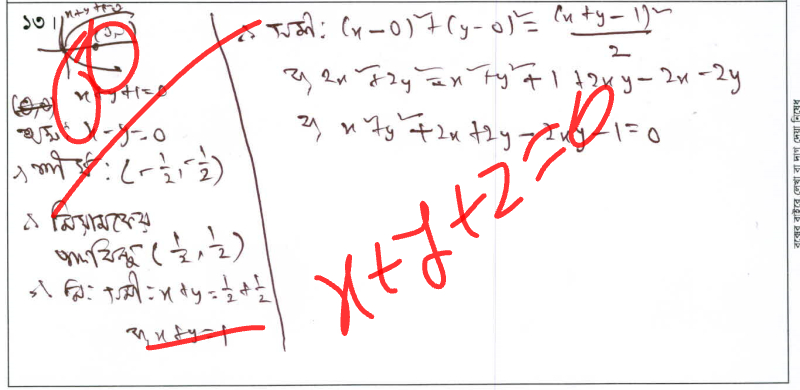 ১৩।
x+y+1=0
অক্ষ: x-y=0
∴ শীর্ষ: (-1/2, -1/2)
∴ নিয়ামকের
পাদবিন্দু (1/2, 1/2)
∴ নি: সমী: x+y = 1/2 + 1/2
বা, x+y=1
∴ সমী: (x-0)²+(y-0)² = (x+y-1)²/2
বা, 2x²+2y² = x²+y²+1+2xy-2x-2y
বা, x²+y²+2x+2y-2xy-1=0
x+y+2=0
বক্সের বাইরে লেখা বা দাগ দেয়া নিষেধ